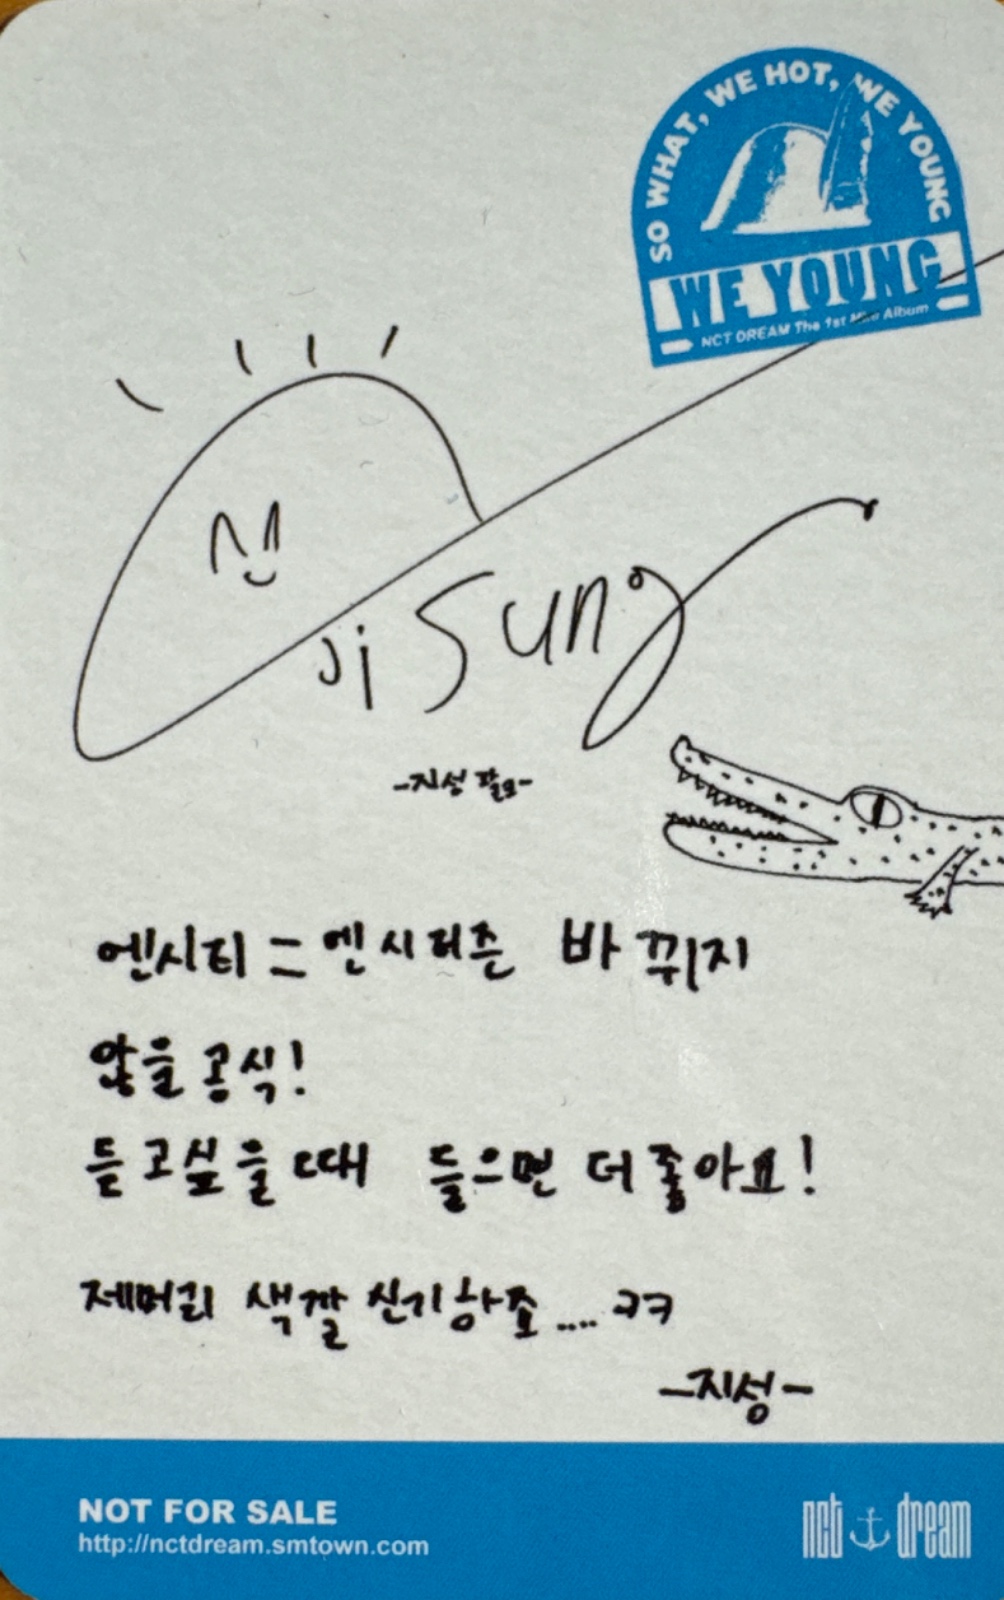 SO WHAT, WE HOT, WE YOUNG
WE YOUNG
NCT DREAM The 1st Mini Album
Ji Sung
-지성 팔로-
엔시티 = 엔시티즌 바뀌지
않을 공식!
듣고싶을때 들으면 더 좋아요!
제머리 색깔 신기하죠.... ㅋㅋ
-지성-
NOT FOR SALE
http://nctdream.smtown.com
nct dream